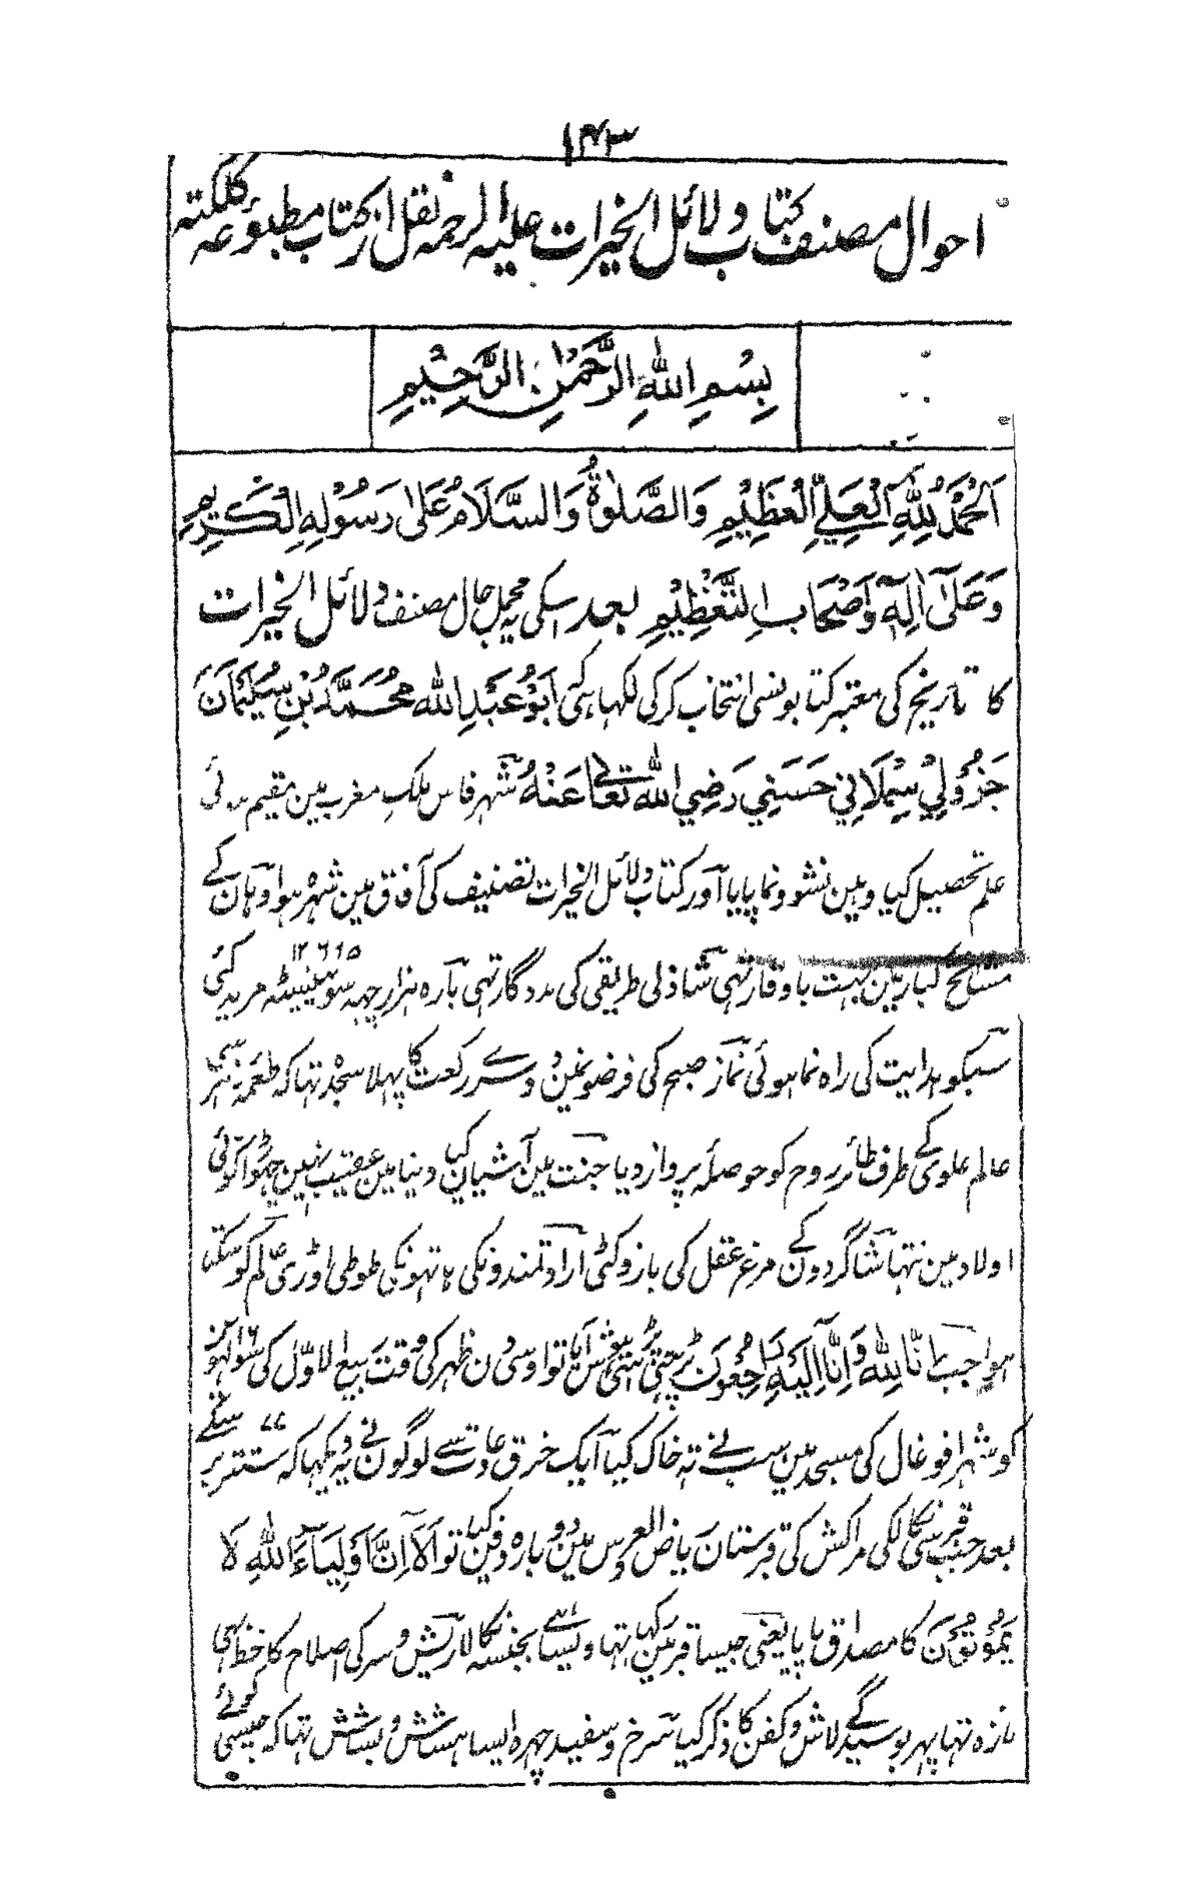 ۱۴۳
احوال مصنف کتاب دلائل الخیرات علیہ الرحمہ نقل از کتاب مطبوعہ کلکتہ
بِسْمِ اللهِ الرَّحْمٰنِ الرَّحِيْمِ
اَلْحَمْدُ لِلّٰهِ الْعَلِيِّ الْعَظِيْمِ وَالصَّلٰوةُ وَالسَّلَامُ عَلٰى رَسُوْلِهِ الْكَرِيْمِ
وَعَلٰى اٰلِهٖ وَاَصْحَابِ التَّعْظِيْمِ بعد اسکی یہ مجمل حال مصنف دلائل الخیرات
کا تاریخ کی معتبر کتابونسی انتخاب کرکی لکھا ہی کہ اَبُوْ عَبْدِ الله مُحَمَّدُ بْنِ سُلَيْمَانَ
جَزُوْلِيْ سِمْلَانِيْ حَسَنِيْ رَضِيَ اللهُ تَعَالٰى عَنْهُ شہر فاس ملک مغرب مین مقیم ہوئی
علم تحصیل کیا وہین نشو و نما پایا اور کتاب دلائل الخیرات تصنیف کی آفاق مین شہرہ ہوا وہان کے
مشائخ کبار مین بہت با وقار تھی شاذلی طریقی کی مددگار تھی بارہ ہزار چھہ سو پینسٹھ ۱۲۶۶۵ مرید کئی
سبکو ہدایت کی راہ نما ہوئی نماز صبح کی فرضونمین دوسرے رکعت کا پہلا سجدہ تھا کہ طعمہ زہر سی
عالم علوی کے طرف طائر روح کو حوصلہ پرواز دیا جنت مین آشیان کیا دنیا مین عقب نہین چھوڑا کوئی
اولاد مین نتھا شاگردون کے مرغ عقل کی بازو کٹی ارادتمندونکی ہاتھونکی طوطی اوڑی عالم کو سکتا
ہوا جب اِنَّا لِلّٰهِ وَاِنَّا اِلَيْهِ رَاجِعُوْنَ پڑھتی پڑھتی ہوش آیا تو اوسی دن ظہر کی وقت ربیع الاول کی سولہوین ۱۶
کو شہر افوغال کی مسجد مین سب نے تہ خاک کیا ایک خرق عادت سے لوگون نے یہ دیکھا کہ ستتر ۷۷ برس کے
بعد جب قبر سی نکالکی مراکش کی قبرستان ریاض العروس مین دوبارہ دفن کیا تو اَلَا اِنَّ اَوْلِيَاءَ اللهِ لَا
يَمُوْتُوْنَ کا مصداق پایا یعنی جیسا قبر مین رکھا تھا ویسا ہے بجنسہ نکالا ریش و سر کی اصلاح کا خط بہی
تازہ تھا پھر بوسیدگے لاش و کفن کا ذکر کیا سرخ و سفید چہرہ ایسا ہشاش و بشاش تھا کہ جیسی کوئے